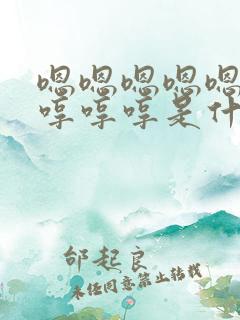 嗯嗯嗯嗯嗯
哼哼哼是什
邰起良
未经同意禁止转载